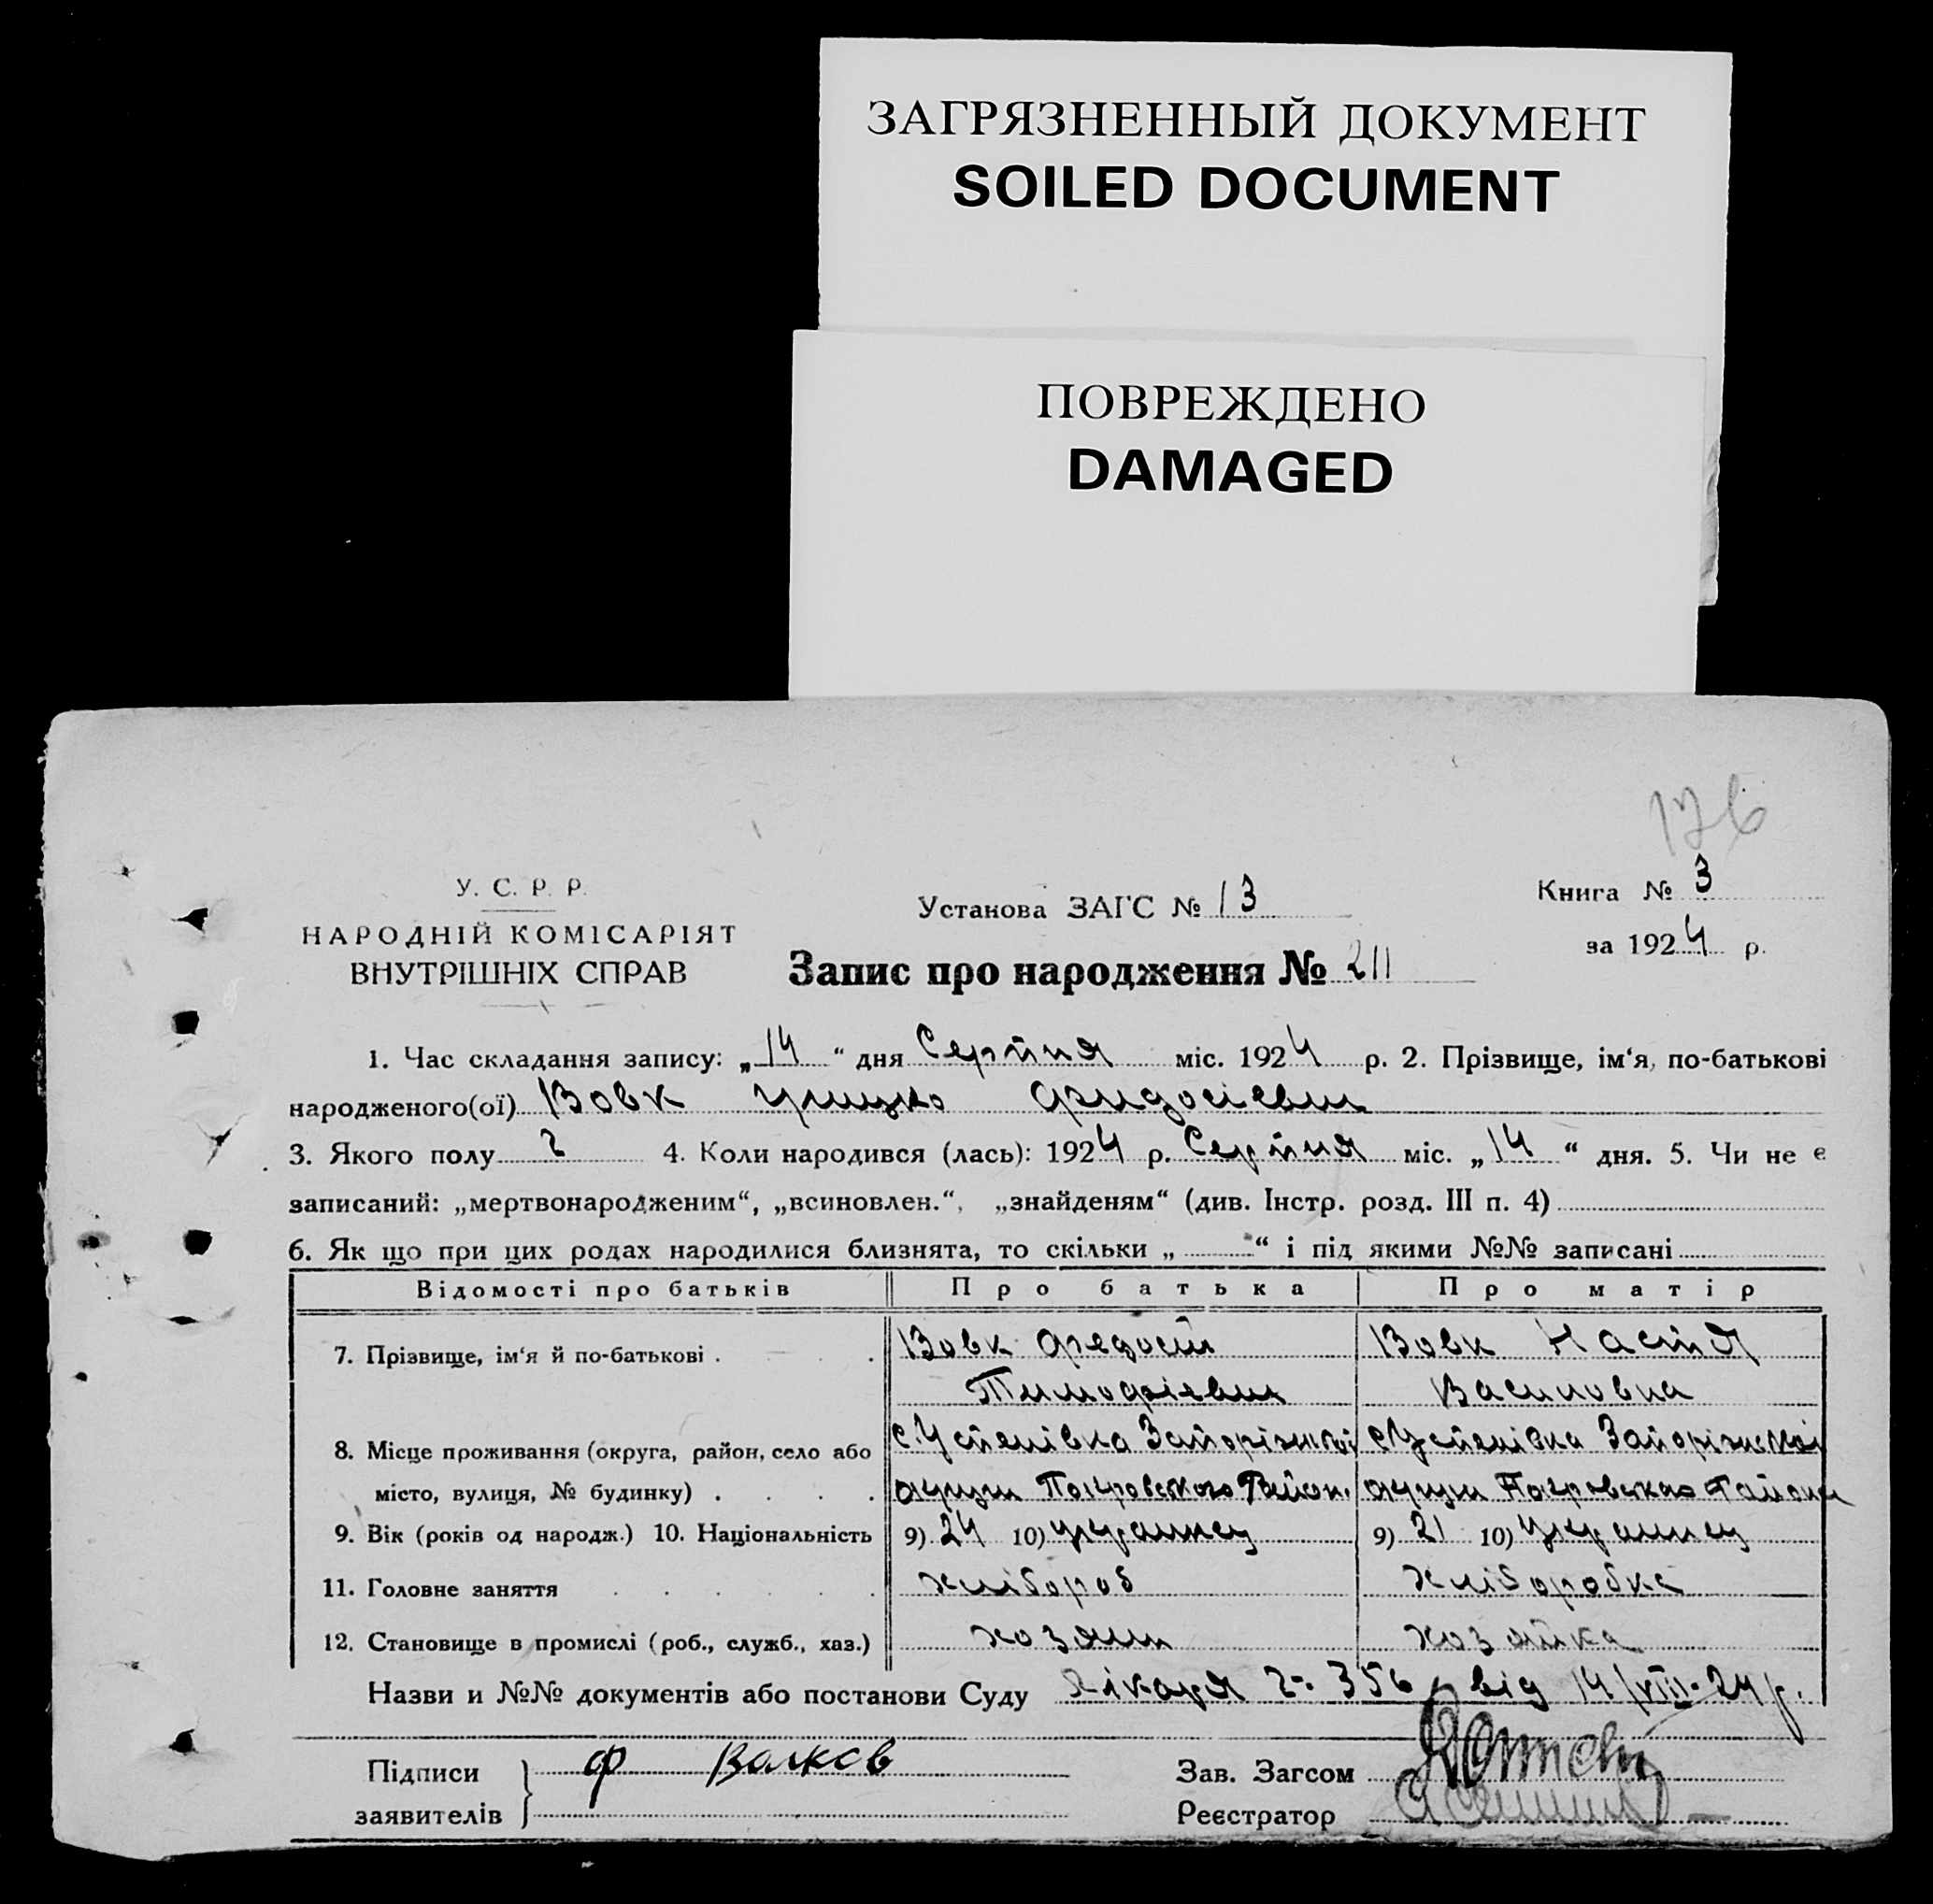 ЗАГРЯЗНЕННЫЙ ДОКУМЕНТ
SOILED DOCUMENT
ПОВРЕЖДЕНО
DAMAGED
126
У. С. Р. Р.
Установа ЗАГС № 13
Книга № 3
НАРОДНІЙ КОМІСАРІЯТ
за 1924 р.
ВНУТРІШНІХ СПРАВ
Запис про народження № 211
1. Час складання запису: „14“ дня Серпня міс. 1924 р. 2. Прізвище, ім‘я, по-батькові
народженого(ої) Вовк Грицко
3. Якого полу 4. Коли народився (лась): 1924 р. Серпня міс. „14“ дня. 5. Чи не є
записаний: „мертвонародженим“, „всиновлен.“, „знайденям“ (див. Інстр. розд. III п. 4)
6. Як що при цих родах народилися близнята, то скільки „ “ і під якими №№ записані
Відомості про батьків Про батька Про матір
7. Прізвище, ім‘я й по-батькові . . . Вовк Федосій Вовк Настя
Тимофієвич Василовна
8. Місце проживання (округа, район, село або с. Успенівка Запоріжской с Успенівка Запоріжской
місто, вулиця, № будинку) . . . . округи Покровського Район. округи Покровського Района
9. Вік (років од народж.) 10. Національність 9) 24 10) украинец 9) 21 10) украинец
11. Головне заняття . . . . . хлібороб хліборобка
12. Становище в промислі (роб., служб., хаз.) хозяин хозяйка
Назви и №№ документів або постанови Суду Лікаря 356 від 14/VIII-24 р.
Підписи Ф Валков
Зав. Загсом
заявителів
Реєстратор